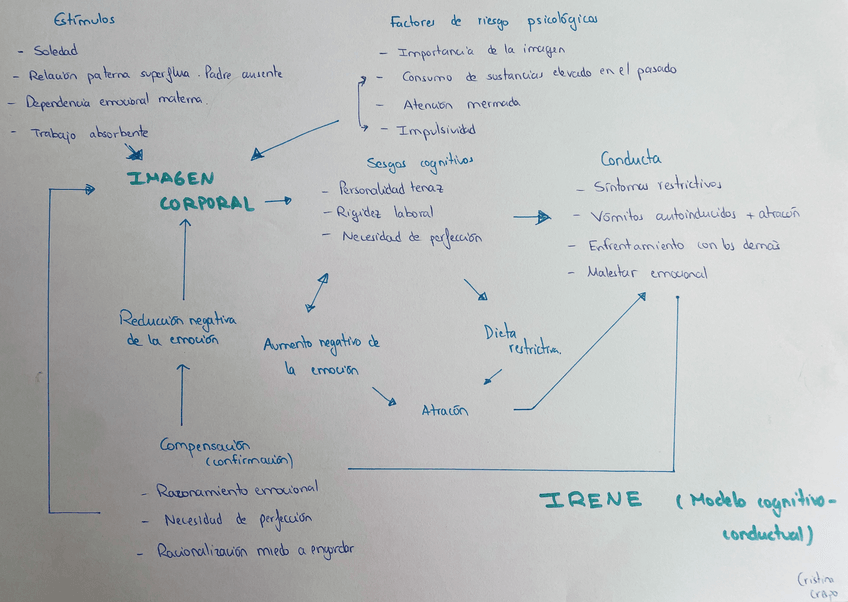 Estímulos
- Soledad
- Relación paterna superflua. Padre ausente
- Dependencia emocional materna.
- Trabajo absorbente
Factores de riesgo psicológicos
- Importancia de la imagen
- Consumo de sustancias elevado en el pasado
- Atención mermada
- Impulsividad
IMAGEN
CORPORAL
Sesgos cognitivos
- Personalidad tenaz
- Rigidez laboral
- Necesidad de perfección
Conducta
- Síntomas restrictivos
- Vómitos autoinducidos + atracón
- Enfrentamiento con los demás
- Malestar emocional
Reducción negativa
de la emoción
Aumento negativo de
la emoción
Dieta
restrictiva.
Atracón
Compensación
(confirmación)
- Razonamiento emocional
- Necesidad de perfección
- Racionalización miedo a engordar
IRENE (Modelo cognitivo-
conductual)
Cristina
Crespo